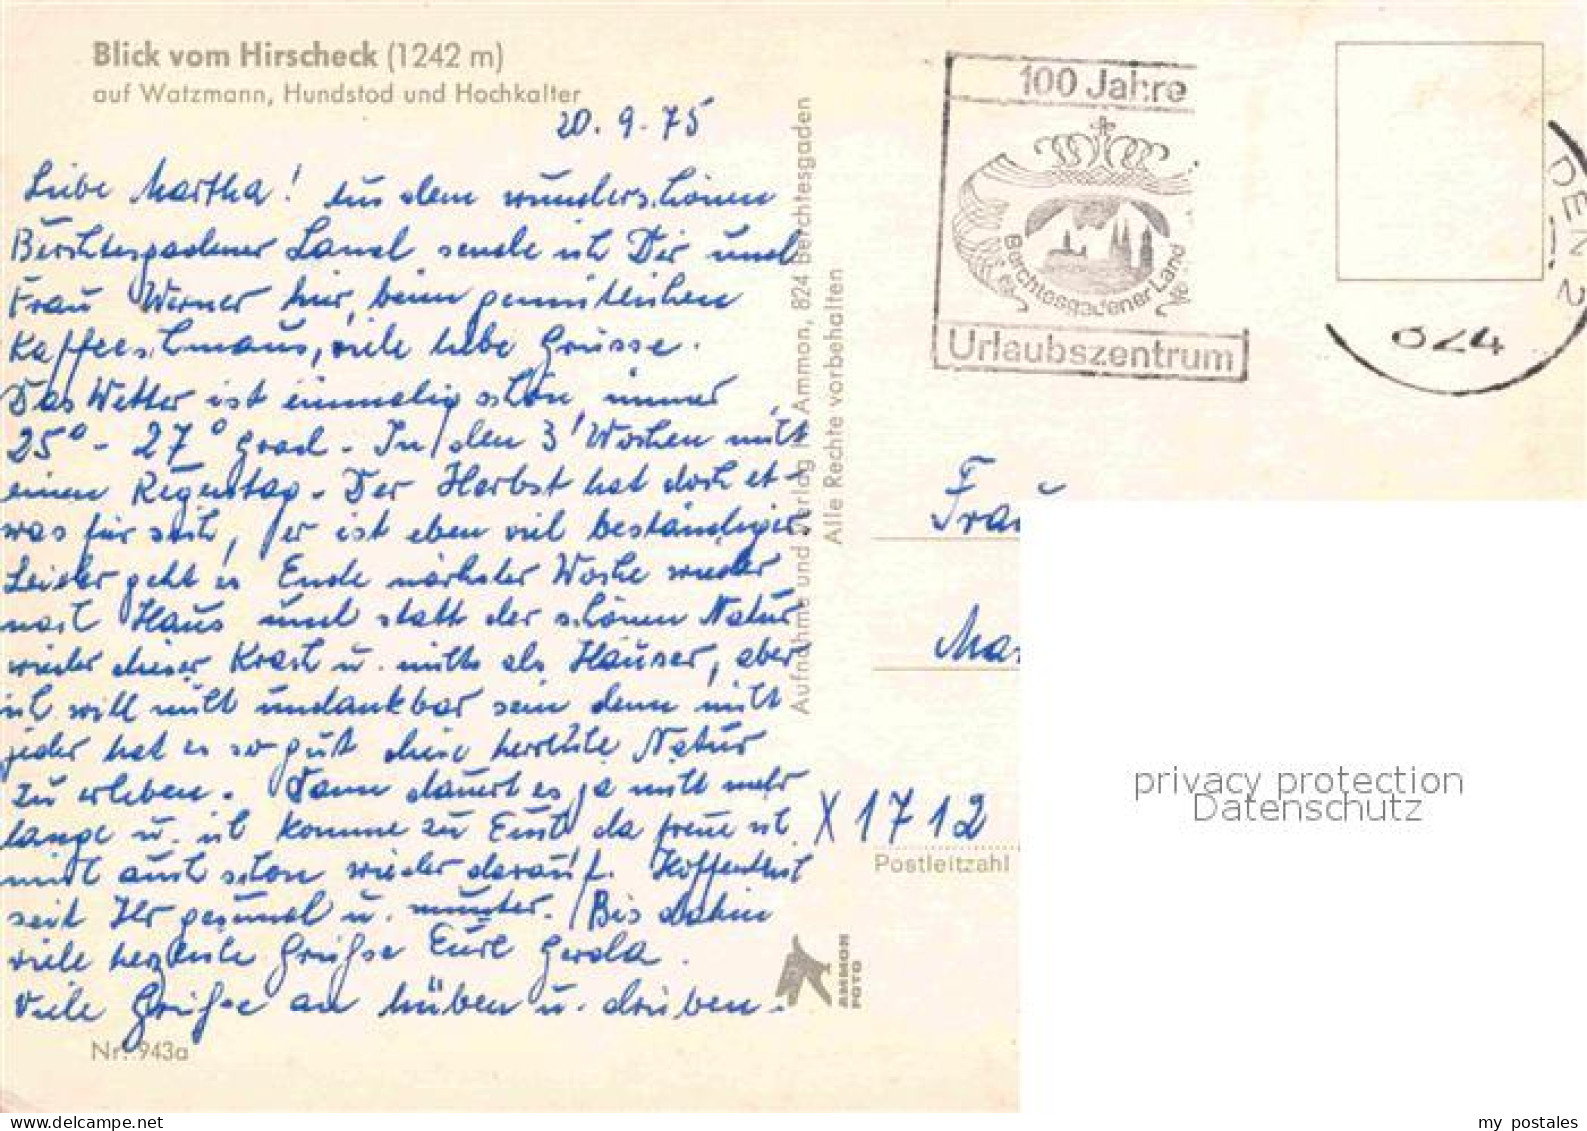 Blick vom Hirscheck (1242 m)
auf Watzmann, Hundstod und Hochkalter
20. 9. 75
Liebe Martha! Aus dem wunderschönen
Berchtesgadener Land sende ich Dir und
Frau Werner hier, beim gemütlichen
Kaffeeschmaus, viele liebe Grüsse.
Das Wetter ist einmalig schön, immer
25° - 27° Grad. In den 3 Wochen nicht
einen Regentag. Der Herbst hat doch et-
was für sich, er ist eben viel beständiger.
Leider geht es Ende nächster Woche wieder
nach Haus und statt der schönen Natur
wieder dieser Krach u. nichts als Häuser, aber
ich will nicht undankbar sein denn nicht
jeder hat es so gut diese herrliche Natur
zu erleben. Dann dauert es ja nicht mehr
lange u. ich komme zu Euch, da freue ich
mich auch schon wieder darauf. Hoffentlich
seit Ihr gesund u. munter. Bis dahin
viele herzliche Grüße Eure Gerda.
Viele Grüße an hüben u. drüben.
Nr. 943a
Aufnahme und Verlag H. Ammon, 824 Berchtesgaden
Alle Rechte vorbehalten
AMMON
FOTO
100 Jahre
Berchtesgadener Land
Urlaubszentrum
DEN 2
824
Frau
X 1712
Postleitzahl
privacy protection
Datenschutz
my postales